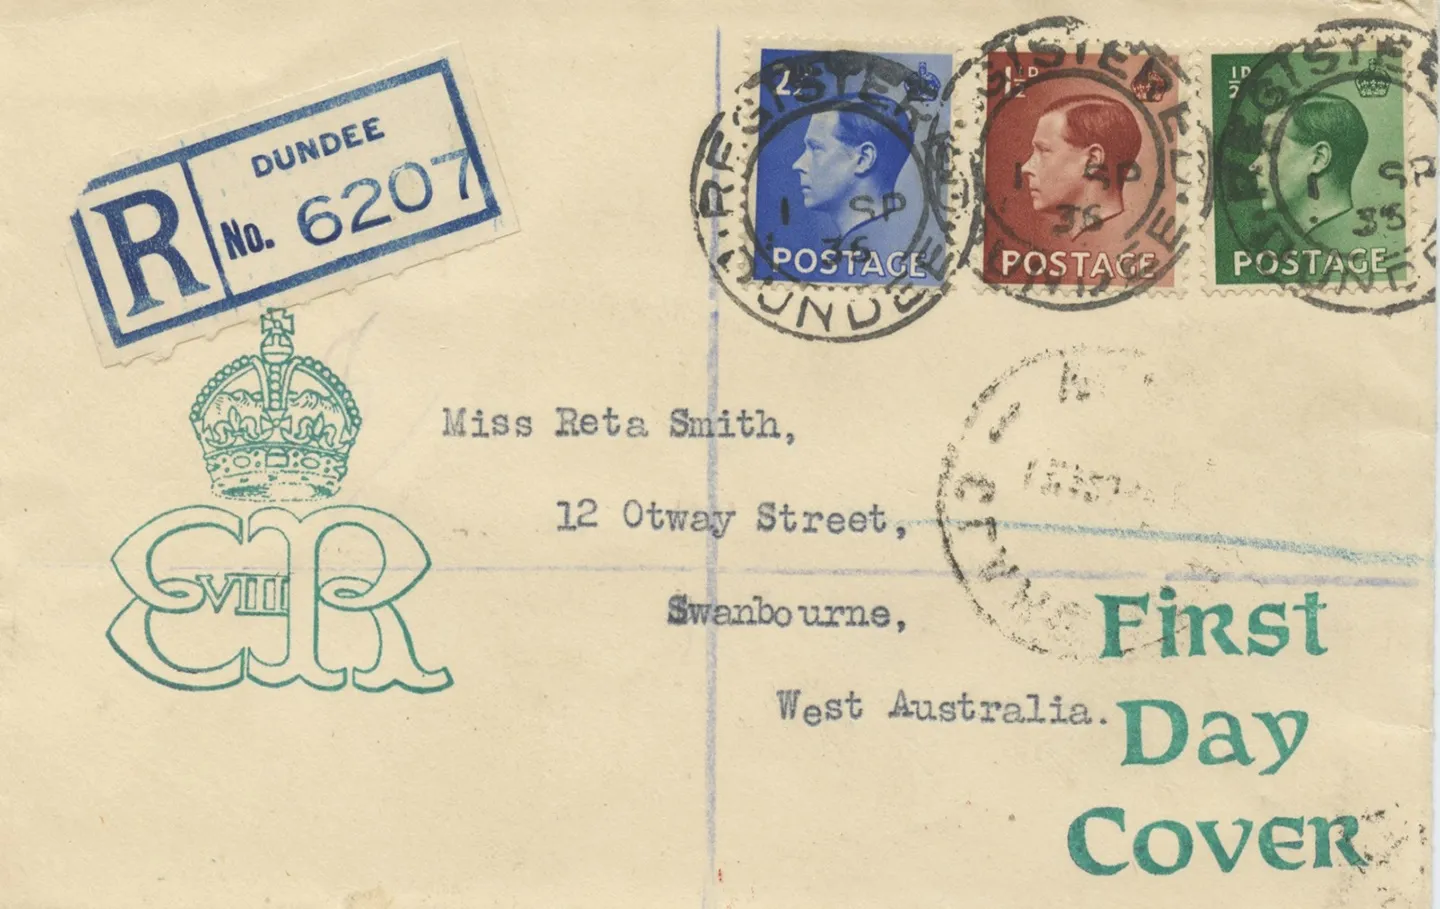 R
DUNDEE
No. 6207
2½D
POSTAGE
1½D
POSTAGE
½D
POSTAGE
REGISTERED
1 SP
36
DUNDEE
REGISTERED
1 SP
36
DUNDEE
REGISTERED
1 SP
36
DUNDEE
EVIIIR
Miss Reta Smith,
12 Otway Street,
Swanbourne,
West Australia.
First
Day
Cover